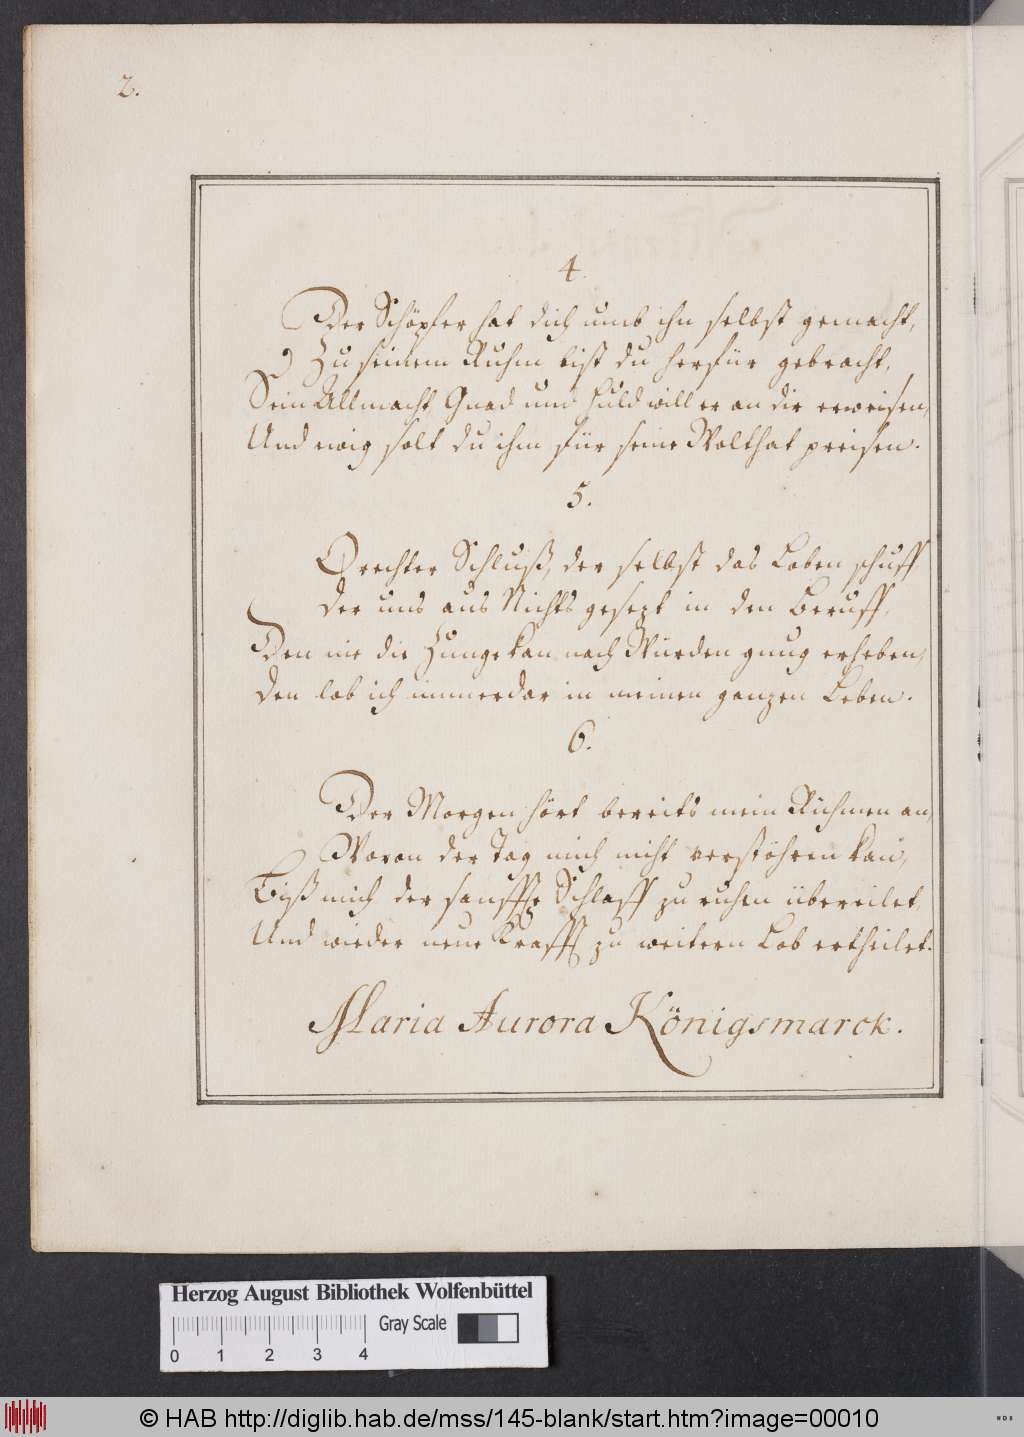 2.
4.
Der Schöpfer hat dich umb ihn selbst gemacht,
Zu seinem Ruhm bist du herfür gebracht,
Sein Allmacht, Gnad und Huld will er an dir erweisen,
Und ewig solt du ihm für seine Wolthat preisen.
5.
O rechter Schluß, der selbst das Leben schuff
der uns aus Nichts gesezt in den Beruff,
Den nie die Zunge kan nach Würden gnug erheben,
den lob ich immerdar in meinen ganzen Leben.
6.
Der Morgen hört bereits mein Rühmen an,
Woran der Tag mich nicht verstöhren kan,
Biß mich der sanffte Schlaff zu ruhen übereilet,
Und wieder neue Krafft zu weitern Lob ertheilet.
Maria Aurora Königsmarck.
Herzog August Bibliothek Wolfenbüttel
Gray Scale
0 1 2 3 4
© HAB http://diglib.hab.de/mss/145-blank/start.htm?image=00010